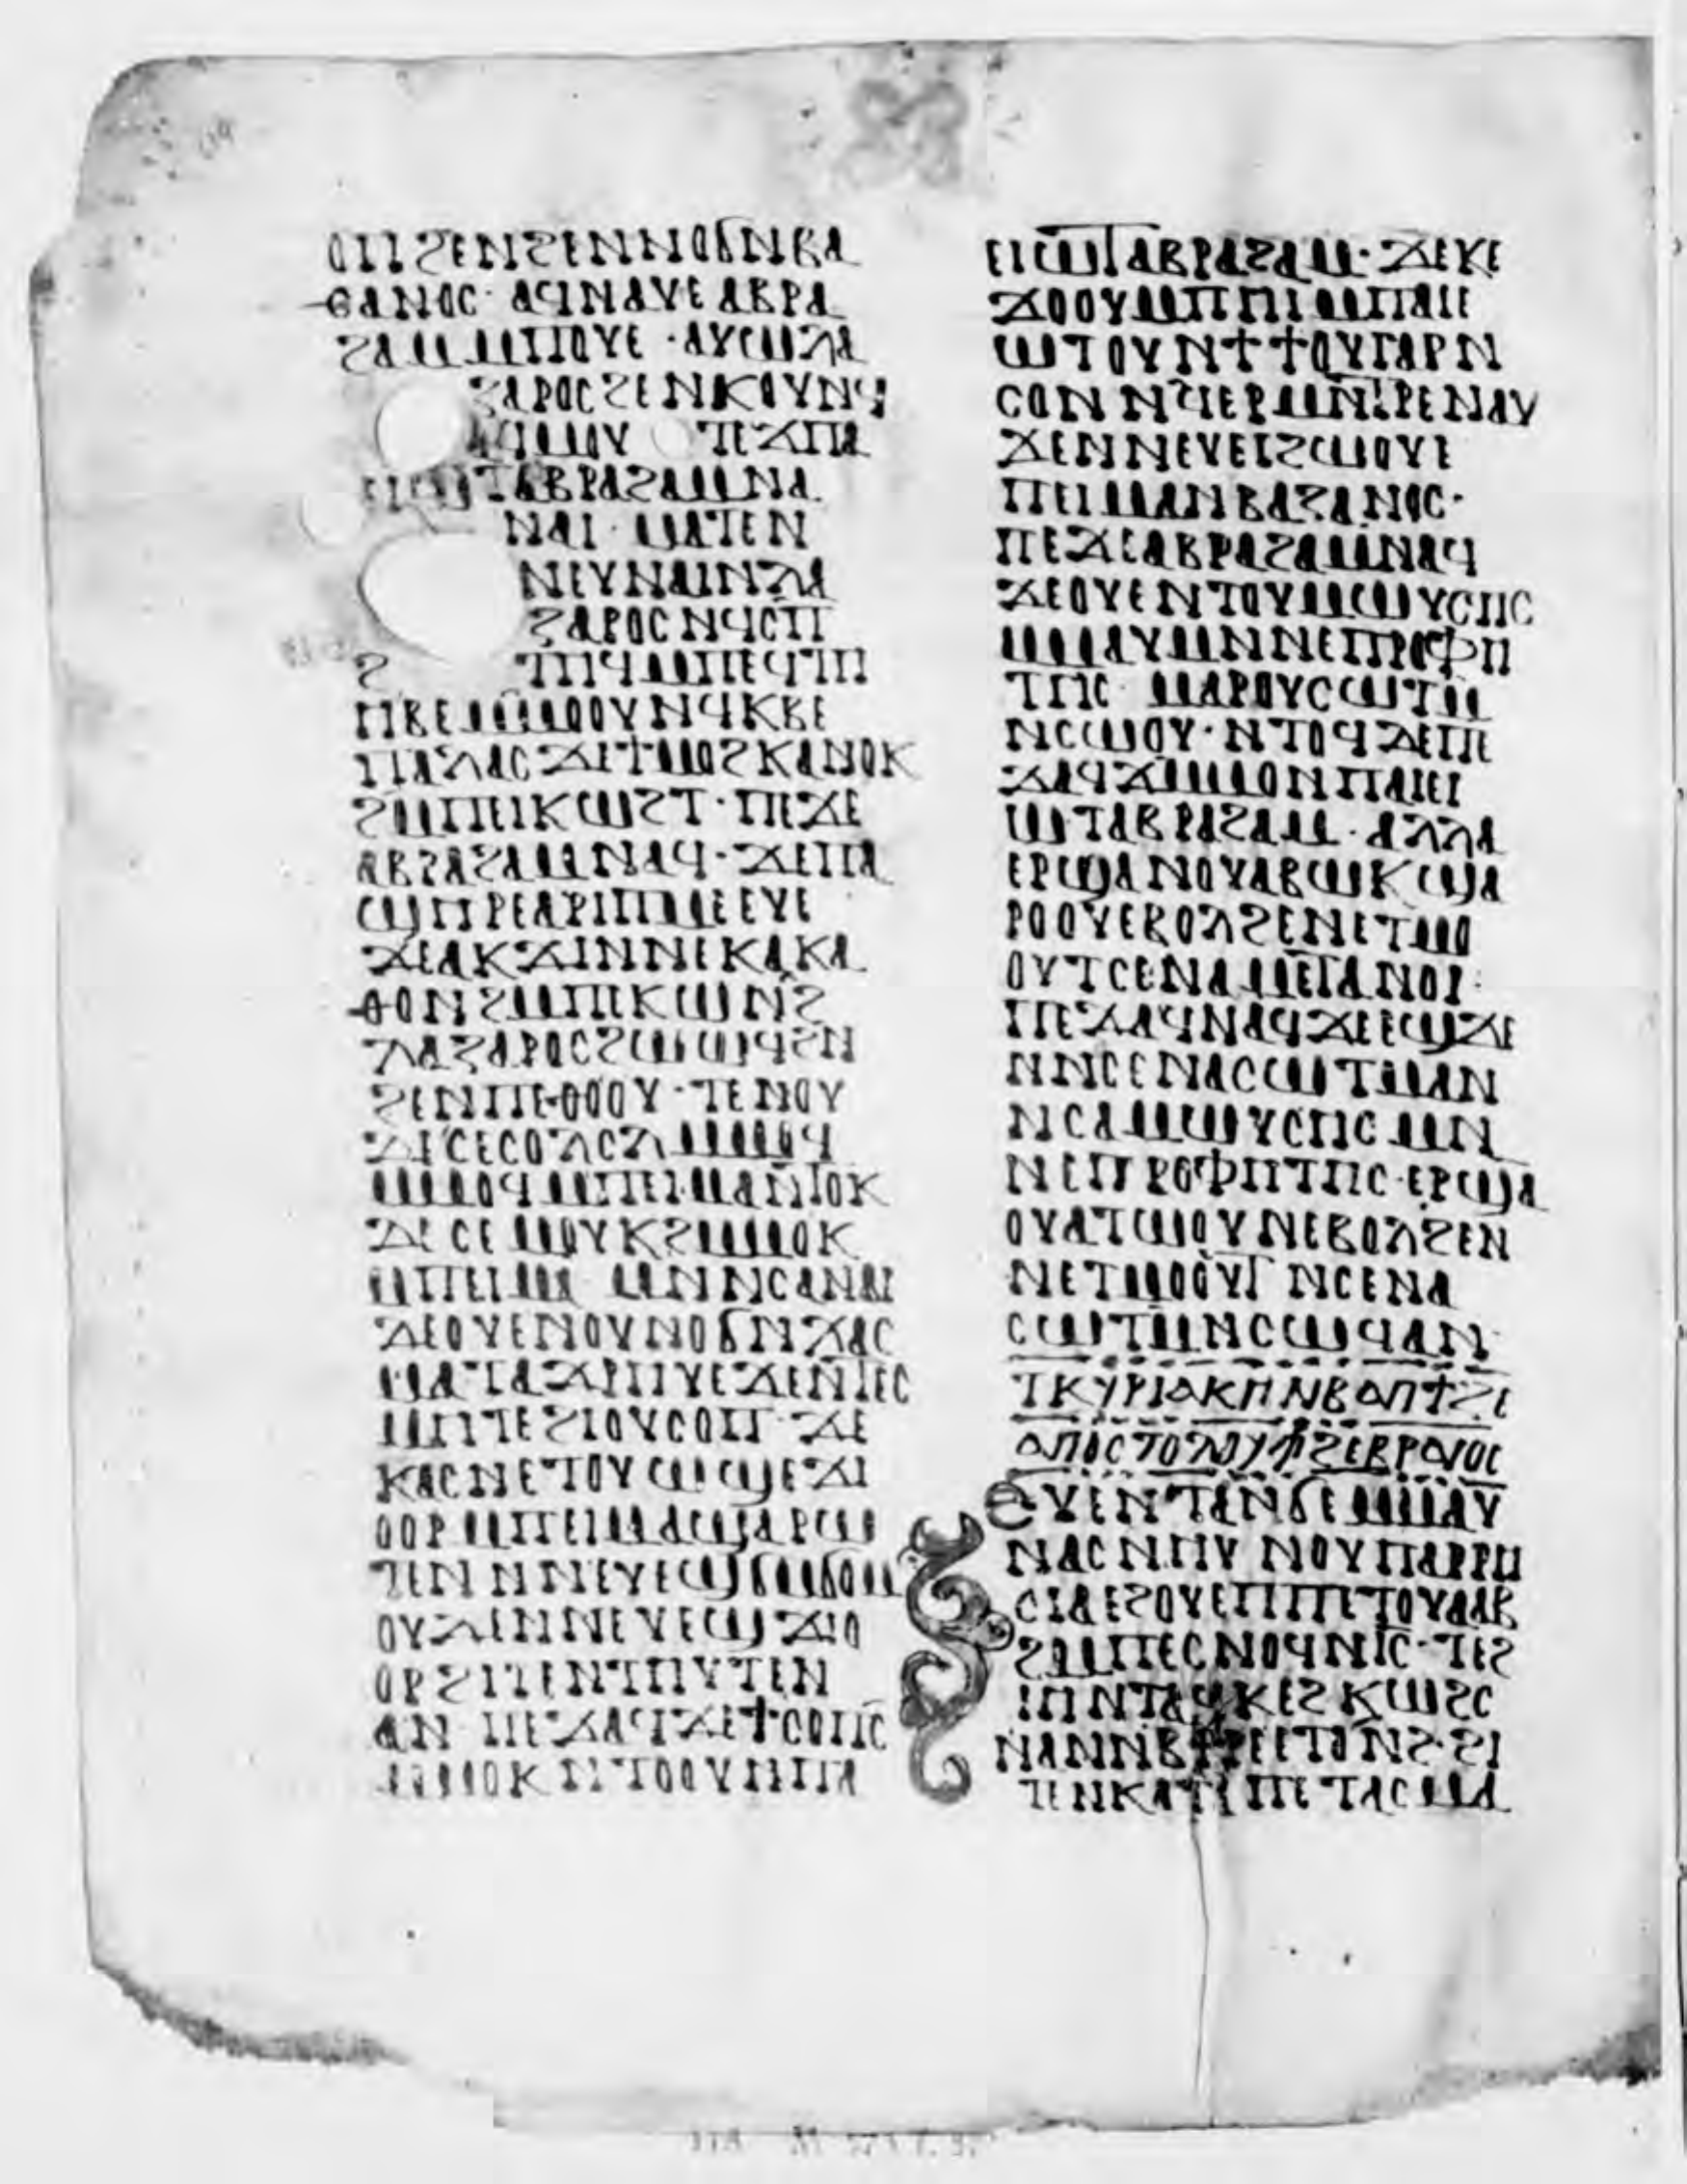 ⲟⲡ ϩⲉⲛϩⲉⲛⲛⲟϭⲛⲃⲁ
ⲑⲁⲛⲟⲥ· ⲁϥⲛⲁⲩⲉⲁⲃⲣⲁ
ϩⲁⲙⲙⲡⲟⲩⲉ· ⲁⲩⲱⲗⲁ
ⲍⲁⲣⲟⲥϩⲉⲛⲕⲟⲩⲛϥ
ⲙⲙⲟⲩ ⲡⲉϫⲡⲁ
ⲉⲓⲱⲧⲁⲃⲣⲁϩⲁⲙⲛⲁ
ⲛⲁⲓ· ⲙⲁⲧⲉⲛ
ⲛⲉⲩⲛⲁⲓⲛⲗⲁ
ⲍⲁⲣⲟⲥⲛϥⲥⲡ
ϩ ⲧⲏϥⲙⲡⲉϥⲧⲏ
ⲏⲃⲉⲙⲙⲟⲟⲩⲛϥⲕⲃⲉ
ⲡⲁⲗⲁⲥϫⲉϯⲙⲟϩⲕⲁⲛⲟⲕ
ϩⲙⲡⲉⲓⲕⲱϩⲧ· ⲡⲉϫⲉ
ⲁⲃⲣⲁϩⲁⲙⲛⲁϥ· ϫⲉⲡⲁ
ϣⲏⲣⲉⲁⲣⲓⲡⲙⲉⲉⲩⲉ
ϫⲉⲁⲕϫⲓⲛⲛⲉⲕⲁⲅⲁ
ⲑⲟⲛϩⲙⲡⲉⲕⲱⲛϩ
ⲗⲁⲍⲁⲣⲟⲥϩⲱⲱϥϩⲛ
ϩⲉⲛⲡⲉⲑⲟⲟⲩ· ⲧⲉⲛⲟⲩ
ⲇⲉⲥⲉⲥⲟⲗⲥⲗⲙⲙⲟϥ
ⲙⲙⲟϥⲙⲡⲉⲓⲙⲁⲛⲧⲟⲕ
ⲇⲉⲥⲉⲙⲟⲩⲕϩⲙⲙⲟⲕ
ⲙⲡⲉⲓⲙⲁ ⲙⲛⲛⲥⲁⲛⲁⲓ
ⲇⲉⲟⲩⲉⲛⲟⲩⲛⲟϭⲛⲭⲁⲥ
ⲙⲁⲧⲁϫⲣⲏⲩⲉϫⲉⲛⲧⲉⲥ
ⲙⲏⲧⲉϩⲓⲟⲩⲥⲟⲡ· ϫⲉ
ⲕⲁⲥⲛⲉⲧⲟⲩⲱϣⲉϫⲓ
ⲟⲟⲣⲙⲡⲉⲓⲙⲁⲁϣⲁⲣⲱ
ⲧⲉⲛⲛⲛⲉⲩⲉϣϭⲙϭⲟⲙ
ⲟⲩⲇⲉⲛⲛⲉⲩⲉϣϫⲓⲟ
ⲟⲣϩⲓⲧⲉⲛⲧⲏⲩⲧⲉⲛ
ⲁⲛ ⲡⲉϫⲁϥϫⲉϯⲥⲟⲡⲥ
ⲙⲙⲟⲕ ⲛⲧⲟⲟⲩⲛⲡⲁ
ⲉⲓⲱⲧⲁⲃⲣⲁϩⲁⲙ· ϫⲉⲕⲉ
ϫⲟⲟⲩⲙⲡⲏⲓⲙⲡⲁⲓⲉ
ⲱⲧⲟⲩⲛϯϯⲟⲩⲅⲁⲣⲛ
ⲥⲟⲛⲛϥⲉⲣⲙⲛⲧⲣⲉⲛⲁⲩ
ϫⲉⲛⲛⲉⲩⲉⲓϩⲱⲟⲩⲉ
ⲡⲉⲓⲙⲁⲛⲃⲁⲍⲁⲛⲟⲥ·
ⲡⲉϫⲉⲁⲃⲣⲁϩⲁⲙⲛⲁϥ
ϫⲉⲟⲩⲉⲛⲧⲟⲩⲙⲱⲩⲥⲏⲥ
ⲙⲙⲁⲩⲙⲛⲛⲉⲡⲣⲟⲫⲏ
ⲧⲏⲥ· ⲙⲁⲣⲟⲩⲥⲱⲧⲙ
ⲛⲥⲱⲟⲩ· ⲛⲧⲟϥⲇⲉⲡⲉ
ϫⲁϥϫⲓⲙⲙⲟⲛⲡⲁⲓⲉⲓ
ⲱⲧⲁⲃⲣⲁϩⲁⲙ· ⲁⲗⲗⲁ
ⲉⲣϣⲁⲛⲟⲩⲁⲃⲱⲕϣⲁ
ⲣⲟⲟⲩⲉⲃⲟⲗϩⲉⲛⲉⲧⲙⲟ
ⲟⲩⲧⲥⲉⲛⲁⲙⲉⲧⲁⲛⲟⲓ·
ⲡⲉϫⲁϥⲛⲁϥϫⲉⲉϣϫⲉ
ⲛⲛⲥⲉⲛⲁⲥⲱⲧⲙⲁⲛ
ⲛⲥⲁⲙⲱⲩⲥⲏⲥⲙⲛ
ⲛⲉⲡⲣⲟⲫⲏⲧⲏⲥ· ⲉⲣϣⲁ
ⲟⲩⲁⲧⲱⲟⲩⲛⲉⲃⲟⲗϩⲉⲛ
ⲛⲉⲧⲙⲟⲟⲩⲧ ⲛⲥⲉⲛⲁ
ⲥⲱⲧⲙⲛⲥⲱϥⲁⲛ·
ⲧⲕⲩⲣⲓⲁⲕⲏⲛⲃⲁⲡϯⲍⲉ
ⲁⲡⲟⲥⲧⲟⲗⲟⲩ ϩⲉⲃⲣⲁⲓⲟⲥ
ⲉⲩⲉⲛⲧⲁⲛϭⲉⲙⲙⲁⲩ
ⲛⲁⲥⲛⲏⲩ ⲛⲟⲩⲡⲁⲣⲣⲏ
ⲥⲓⲁⲉϩⲟⲩⲉⲡⲡⲉⲧⲟⲩⲁⲁⲃ
ϩⲙⲡⲉⲥⲛⲟϥⲛⲓⲥ· ⲧⲉϩ
ⲓⲏⲛⲧⲁϥⲕⲉϩⲕⲱϩⲥ
ⲛⲁⲛⲛⲃⲣⲣⲉⲉⲧⲟⲛϩ· ϩⲓ
ⲧⲉⲛⲕⲁⲧⲁⲡⲉⲧⲁⲥⲙⲁ